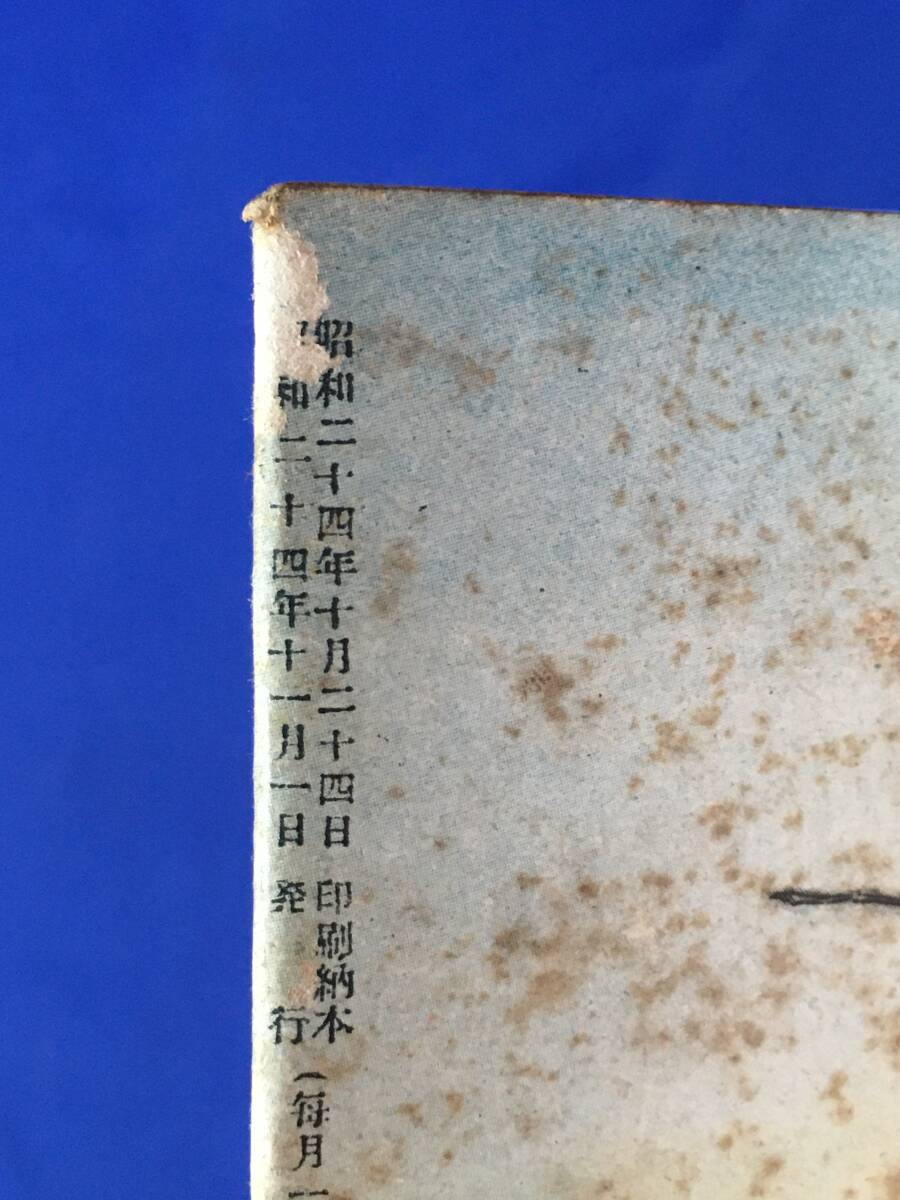 昭和二十四年十月二十四日 印刷納本
和二十四年十一月一日 発行
(毎月一